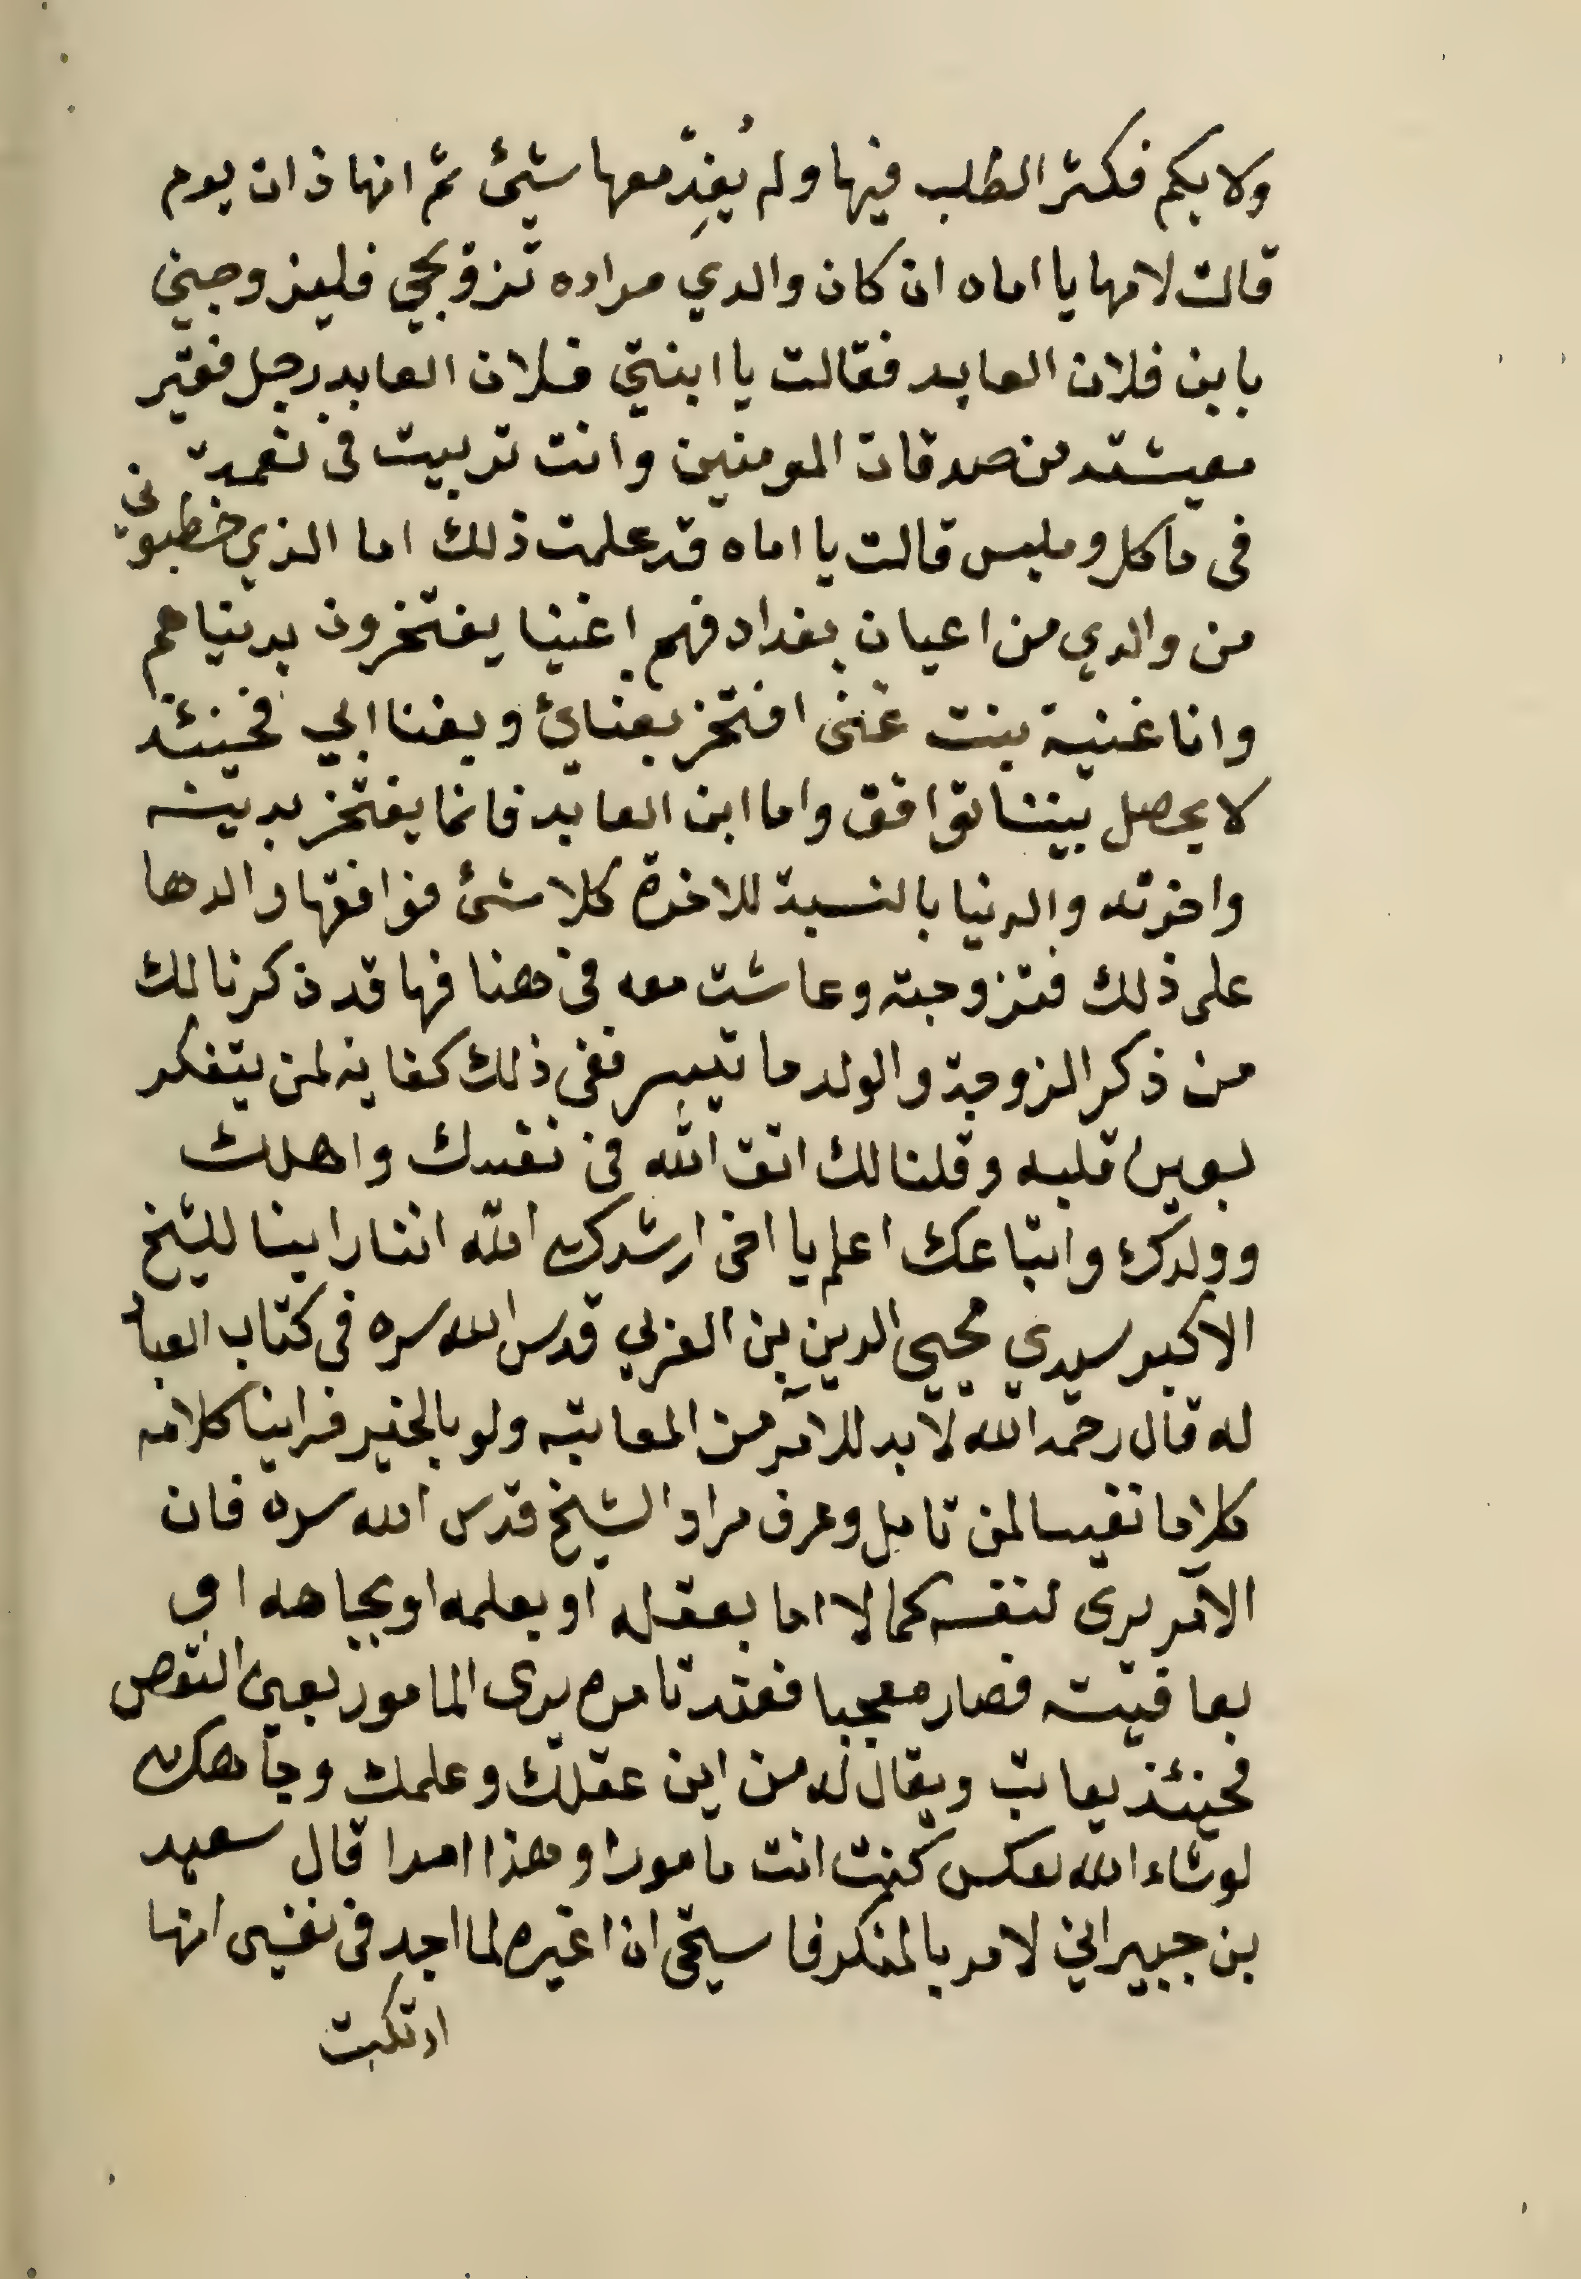 ولابكم فكثر الطلب فيها ولم يُفِدّ معها شيئ ثم انها ذات يوم
قالت لامها يا اماه ان كان والدي مراده تزويجي فليزوجني
بابن فلان العابد فقالت يا ابنتي فلان العابد رجل فقير
معيشته من صدقات المومنين وانت تربيت في نعمة
في ماكل وملبس قالت يا اماه قد علمت ذلك اما الذي خطبوني
من والدي من اعيان بغداد فهم اغنيا يفتخرون بدنياهم
وانا غنية بنت غنى افتخر بغنائ وبغنا ابي فحينئذ
لا يحصل بيننا توافق واما ابن العابد فانما يفتخر بدينه
واخرته والدنيا بالنسبة للاخرة كلا شئ فوافقها والدها
على ذلك فتزوجته وعاشت معه في هنا فها قد ذكرنا لك
من ذكر الزوجة والولد ما تيسر ففي ذلك كفاية لمن يتفكر
بعين قلبه وقلنا لك اتق الله في نفسك واهلك
وولدك واتباعك اعلم يا اخي ارشدك الله اننا راينا للشيخ
الاكبر سيدي محيي الدين بن العربي قدس الله سره في كتاب العبا
له قال رحمه الله لا بد للآمر من المعاتبه ولو بالخير فراينا كلامه
كلاما نفيسا لمن تامل وعرف مراد الشيخ قدس الله سره فان
الآمر يرى لنفسه كمالا اما بعقله او بعلمه او بجاهه او
بعافيته فصار معجبا فعند تامره يرى المامور بعين النقص
فحينئذ يعاتب ويقال له من اين عقلك وعلمك وجاهك
لو شاء الله لعكس كنت انت مامورا وهذا امرا قال سعيد
بن جبير اني لامر بالمنكر فاستحى ان اغيره لما اجد في نفسي انها
ارتكبت